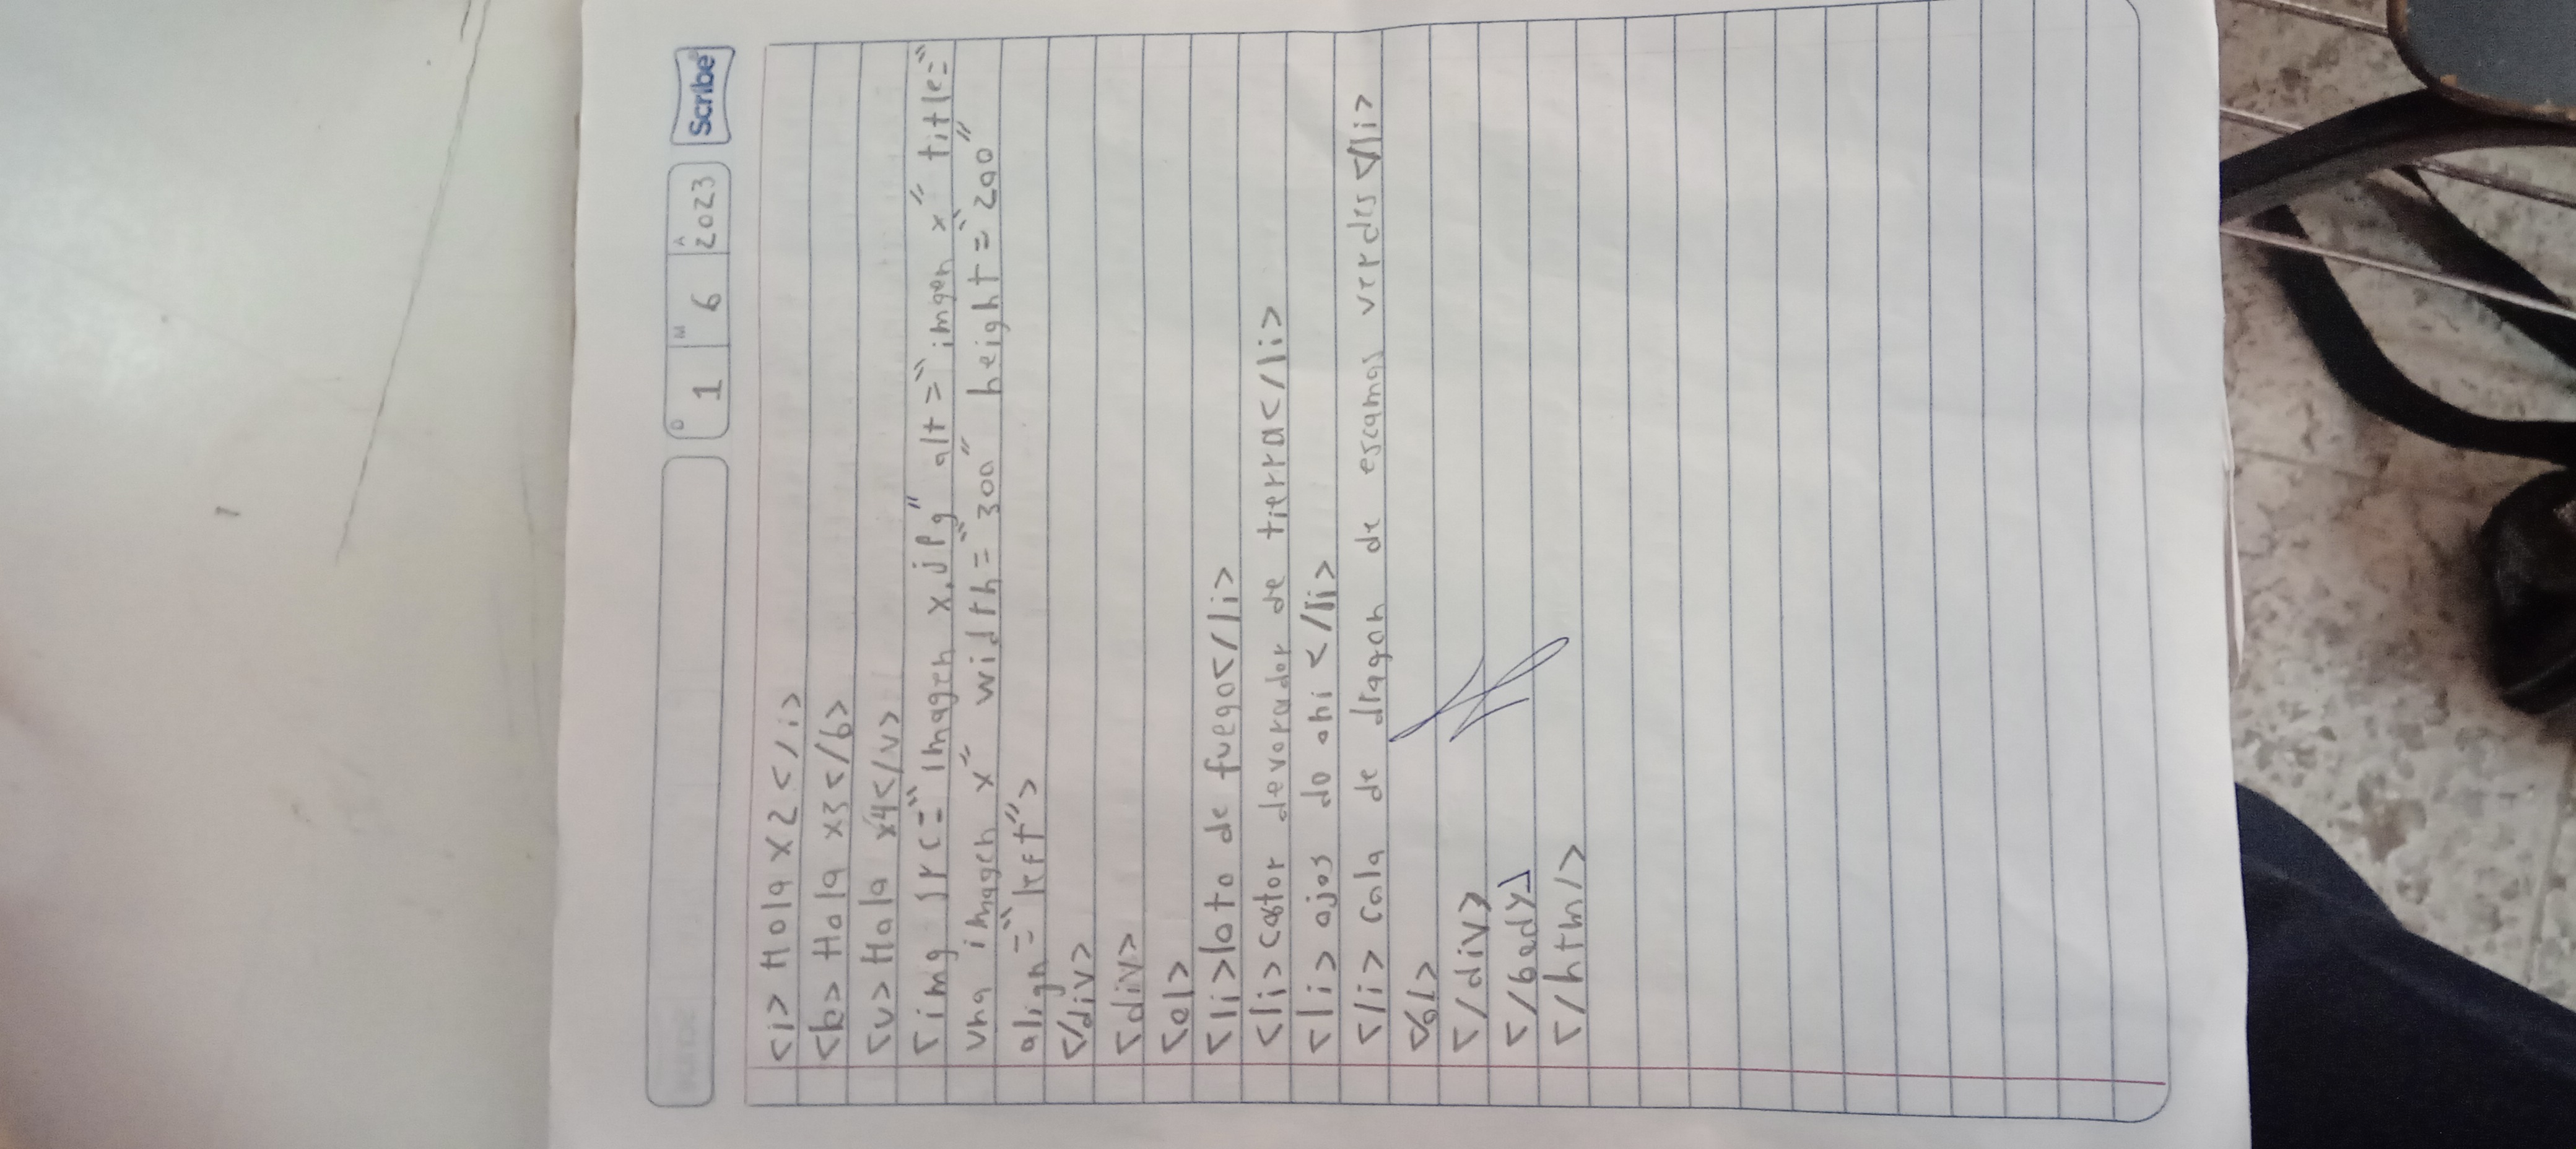 D 1 M 6 A 2023 Scribe
<i> Hola x2 </i>
<b> Hola x3 </b>
<u> Hola x4</u>
<img src="imagen x.jpg" alt="imgen x" title="
una imagen x" width="300" height="200"
align="left">
</div>
<div>
<ol>
<li>loto de fuego</li>
<li>castor devorador de tierra</li>
<li> ojos do ahi </li>
</li> cola de dragon de escamas verdes </li>
</ol>
</div>
</body>
</html>